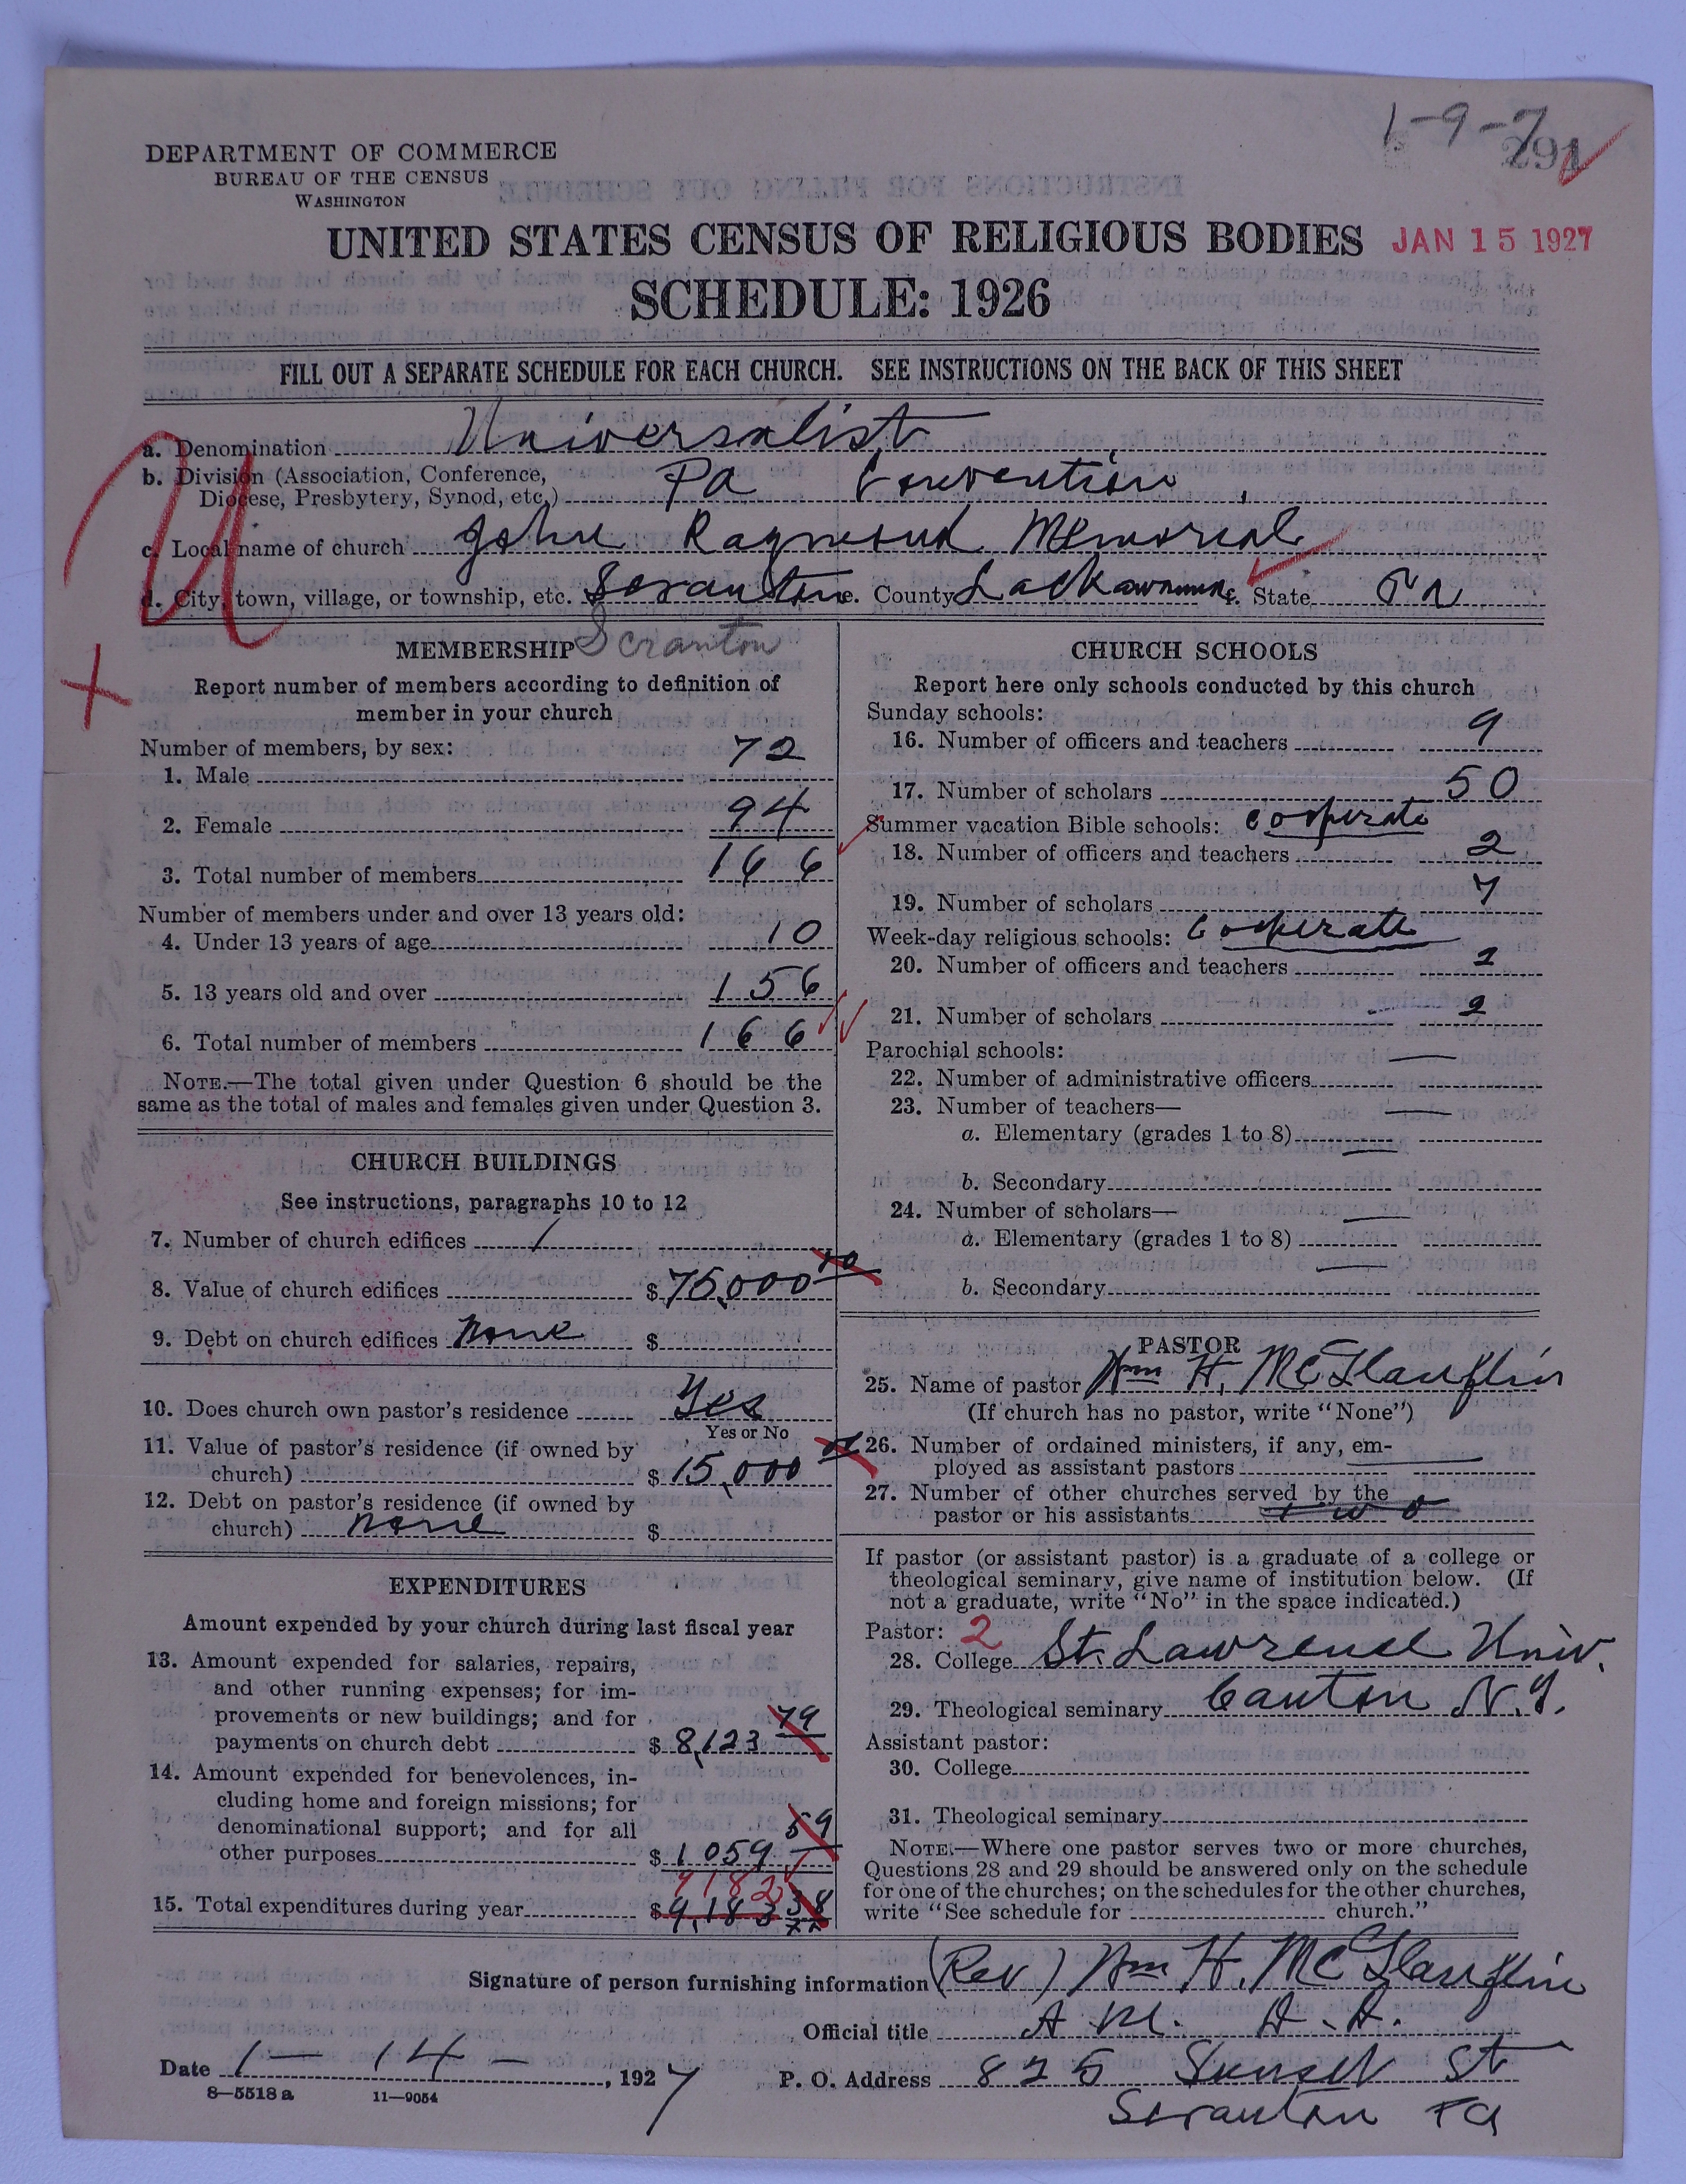 1-9-7
291
DEPARTMENT OF COMMERCE
BUREAU OF THE CENSUS
WASHINGTON
UNITED STATES CENSUS OF RELIGIOUS BODIES
JAN 15 1927
SCHEDULE: 1926
FILL OUT A SEPARATE SCHEDULE FOR EACH CHURCH. SEE INSTRUCTIONS ON THE BACK OF THIS SHEET
U
a. Denomination Universalist
b. Division (Association, Conference,
Diocese, Presbytery, Synod, etc.) Pa Convention
c. Local name of church John Raymond Memorial
d. City, town, village, or township, etc. Scranton County Lackawanna State Pa
X
MEMBERSHIP Scranton
Report number of members according to definition of
member in your church
Number of members, by sex:
1. Male 72
2. Female 94
3. Total number of members 166
Number of members under and over 13 years old:
4. Under 13 years of age 10
5. 13 years old and over 156
6. Total number of members 166
NOTE.—The total given under Question 6 should be the
same as the total of males and females given under Question 3.
CHURCH BUILDINGS
See instructions, paragraphs 10 to 12
7. Number of church edifices 1
8. Value of church edifices $ 75,000
9. Debt on church edifices None $
10. Does church own pastor's residence Yes
Yes or No
11. Value of pastor's residence (if owned by
church) $ 15,000
12. Debt on pastor's residence (if owned by
church) None $
EXPENDITURES
Amount expended by your church during last fiscal year
13. Amount expended for salaries, repairs,
and other running expenses; for im-
provements or new buildings; and for
payments on church debt $ 8,123 79
14. Amount expended for benevolences, in-
cluding home and foreign missions; for
denominational support; and for all
other purposes $ 1059 59
9182
15. Total expenditures during year $ 9,183 38
CHURCH SCHOOLS
Report here only schools conducted by this church
Sunday schools:
16. Number of officers and teachers 9
17. Number of scholars 50
Summer vacation Bible schools: Cooperate
18. Number of officers and teachers 2
19. Number of scholars 7
Week-day religious schools: Cooperate
20. Number of officers and teachers
21. Number of scholars 2
Parochial schools:
22. Number of administrative officers
23. Number of teachers—
a. Elementary (grades 1 to 8)
b. Secondary
24. Number of scholars—
a. Elementary (grades 1 to 8)
b. Secondary
PASTOR
25. Name of pastor Wm H. McGlauflin
(If church has no pastor, write "None")
26. Number of ordained ministers, if any, em-
ployed as assistant pastors
27. Number of other churches served by the
pastor or his assistants two
If pastor (or assistant pastor) is a graduate of a college or
theological seminary, give name of institution below. (If
not a graduate, write "No" in the space indicated.)
Pastor: 2
28. College St. Lawrence Univ.
29. Theological seminary Canton N.Y.
Assistant pastor:
30. College
31. Theological seminary
NOTE.—Where one pastor serves two or more churches,
Questions 28 and 29 should be answered only on the schedule
for one of the churches; on the schedules for the other churches,
write "See schedule for church."
Signature of person furnishing information (Rev) Wm H. McGlauflin
Official title A.M. D.D.
Date 1-14-, 1927
P. O. Address 825 Sunset St
Scranton Pa
8—5518 a 11—9054